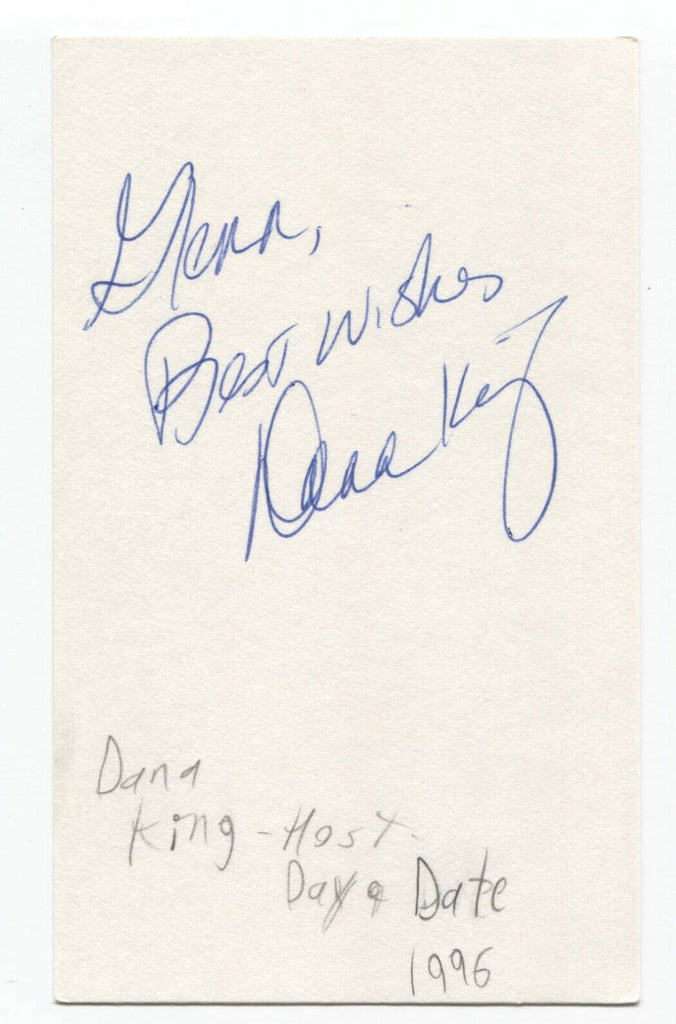 Glenn,
Best Wishes
Dana King
Dana
King - Host
Day & Date
1996